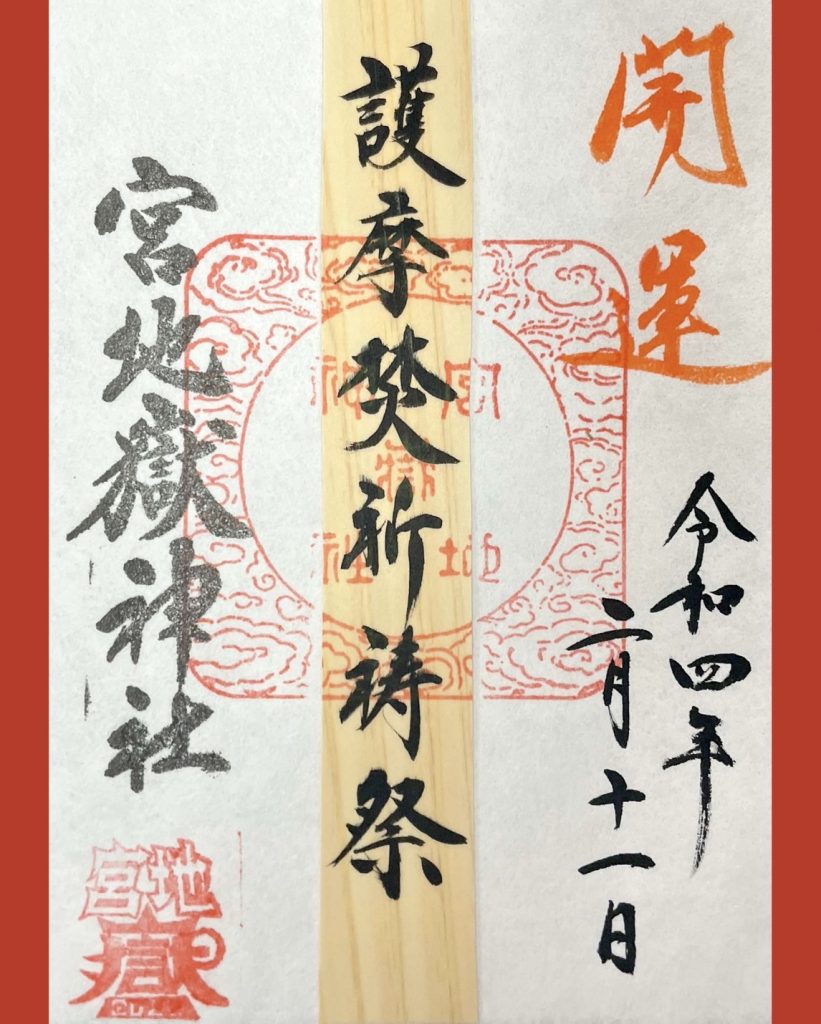 開運
令和四年
二月十一日
護摩焚祈祷祭
宮地嶽神社
宮地嶽神社
宮地嶽